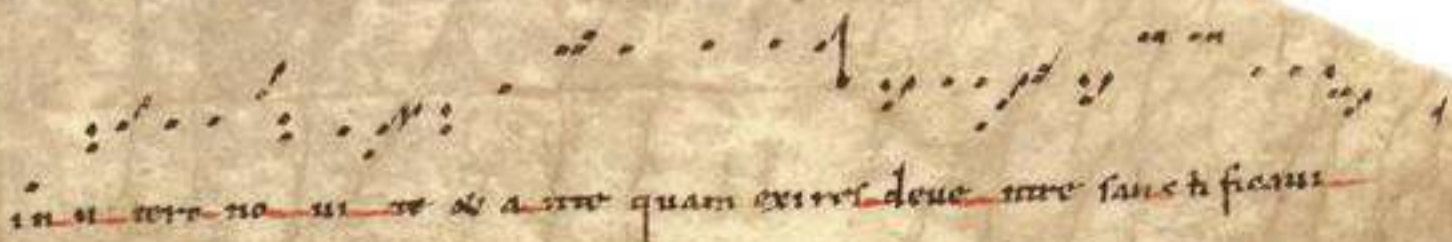 in u tero no ui te & a nte quam exires deue ntre sancti ficaui